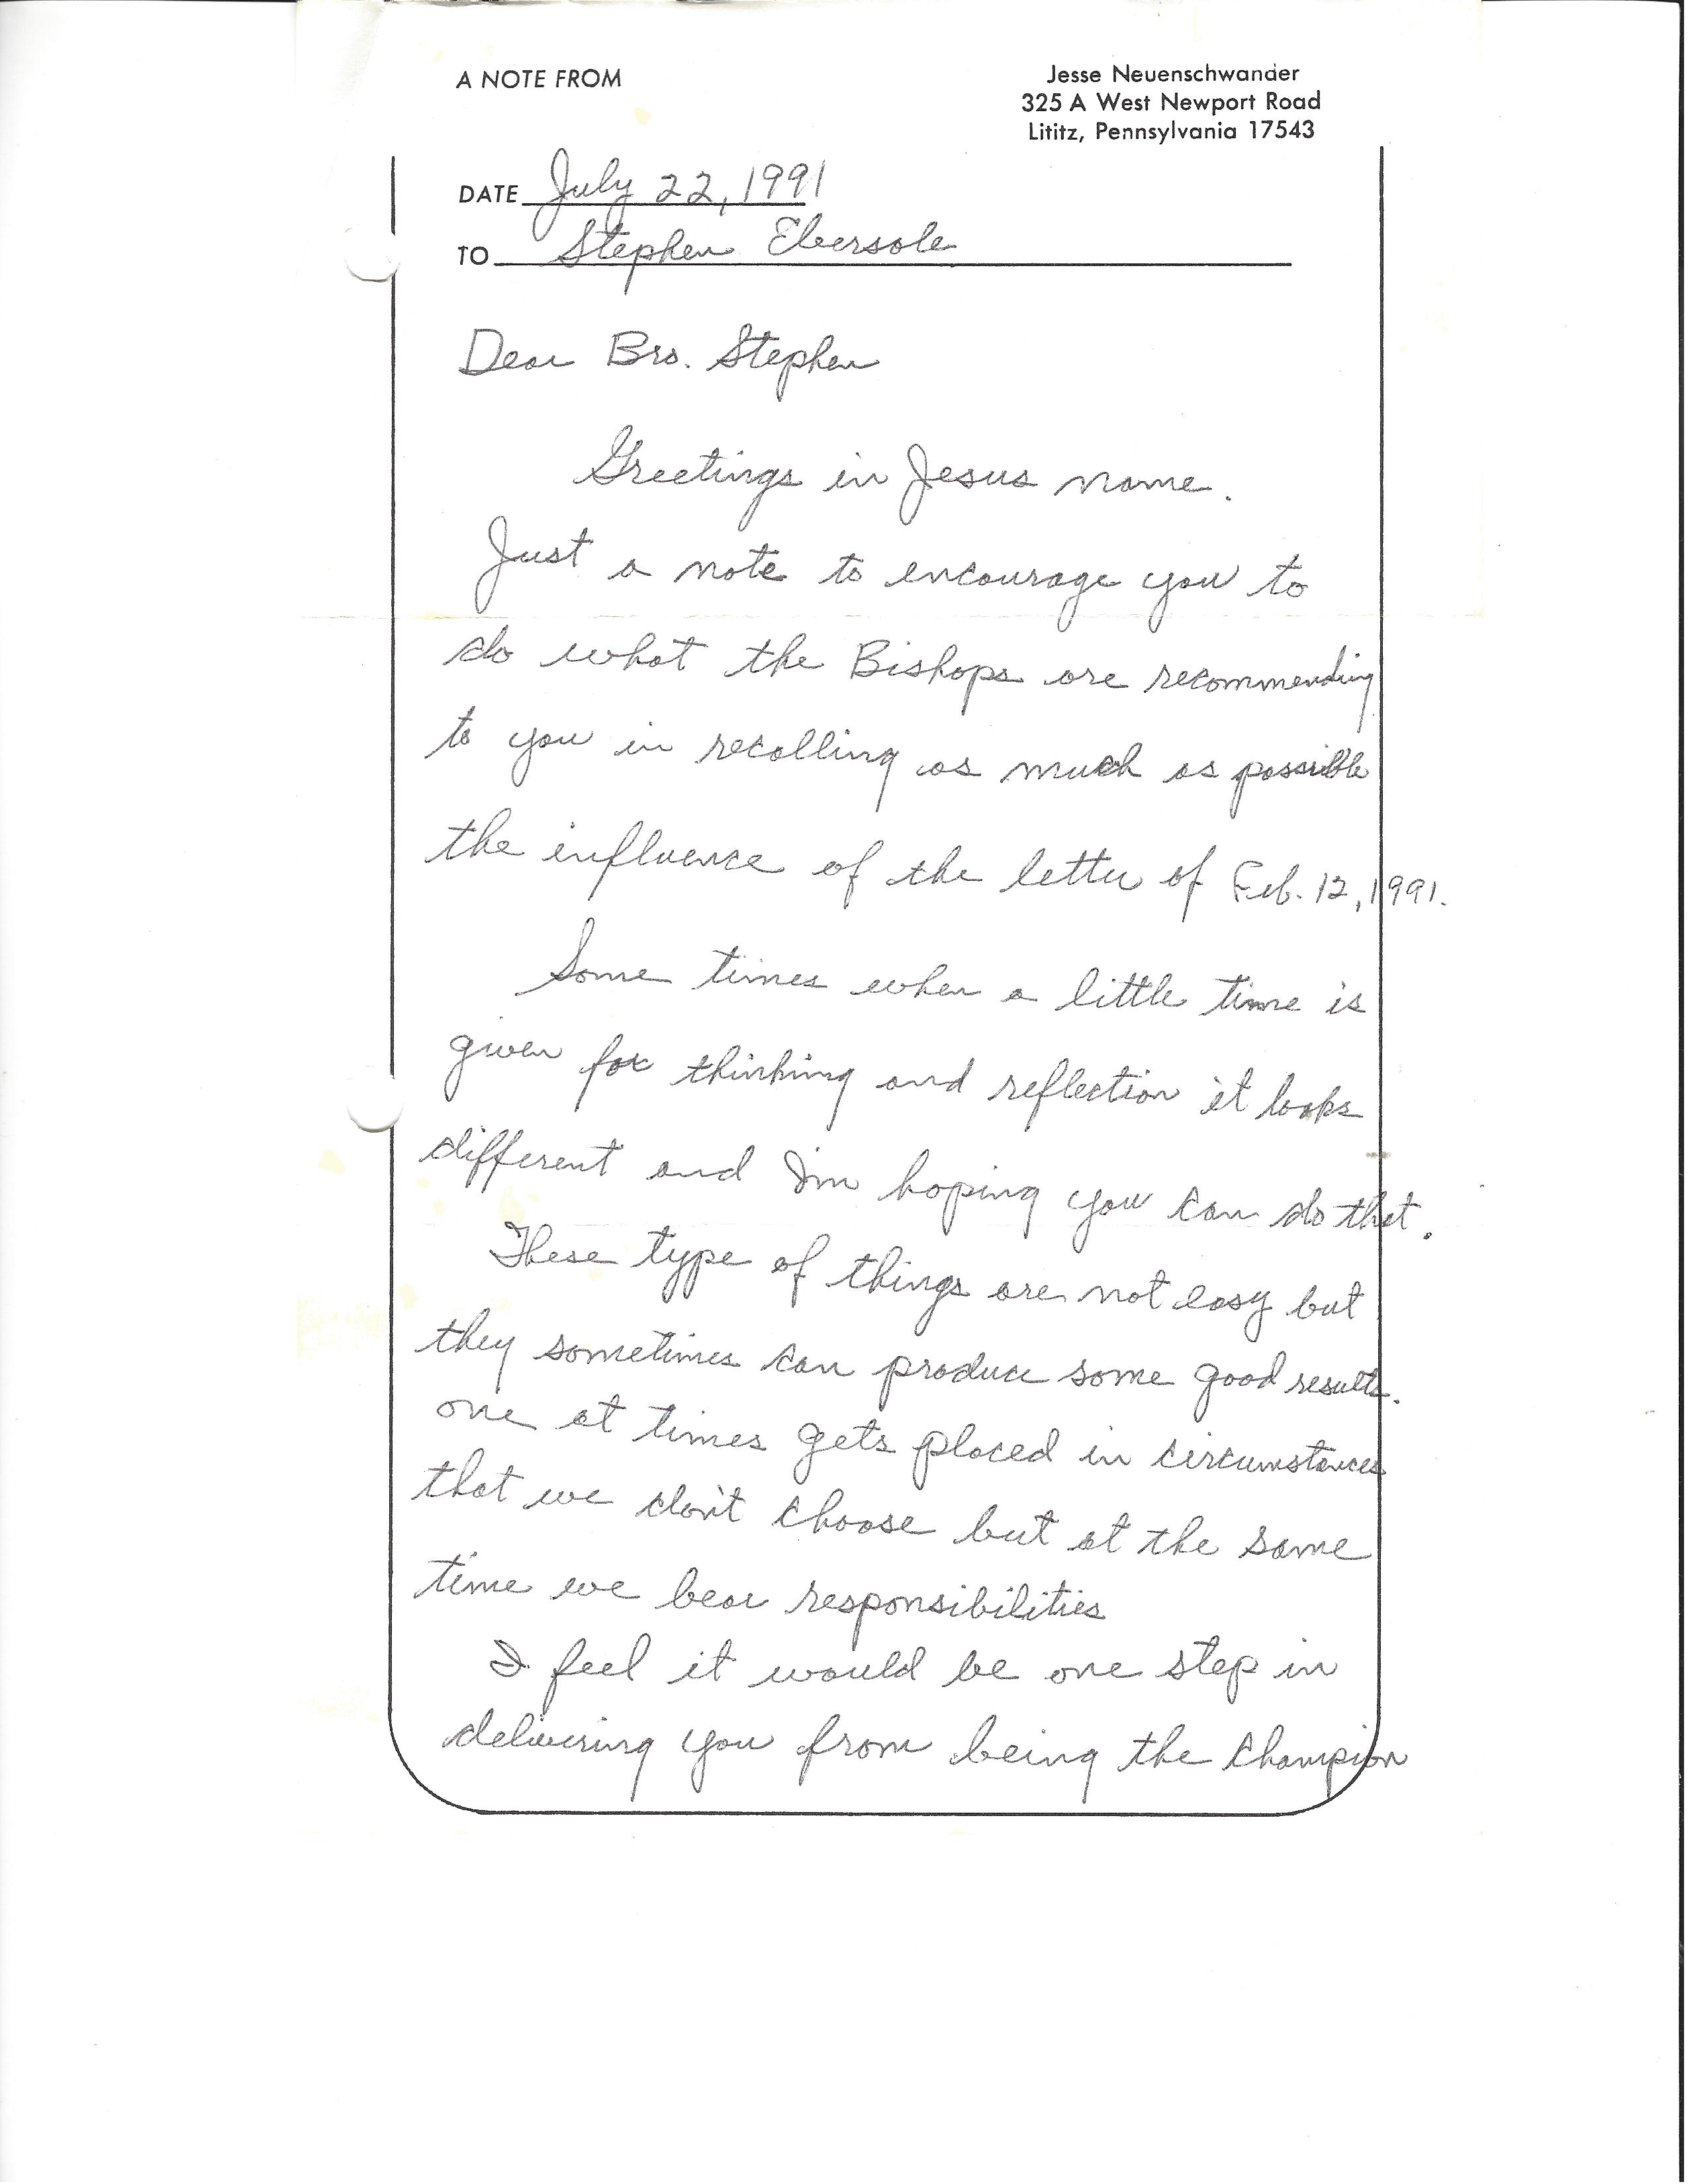 A NOTE FROM
Jesse Neuenschwander
325 A West Newport Road
Lititz, Pennsylvania 17543
DATE July 22, 1991
TO Stephen Ebersole
Dear Bro. Stephen
Greetings in Jesus name.
Just a note to encourage you to
do what the Bishops are recommending
to you in recalling as much as possible
the influence of the letter of Feb. 12, 1991.
Some times when a little time is
given for thinking and reflection it looks
different and I'm hoping you can do that.
These type of things are not easy but
they sometimes can produce some good results.
one at times gets placed in circumstances
that we don't choose but at the same
time we bear responsibilities
I feel it would be one step in
delivering you from being the champion